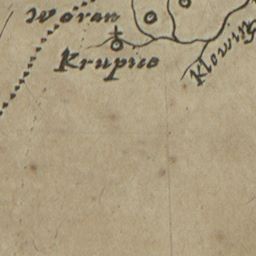 woran
Krupice
Klowin